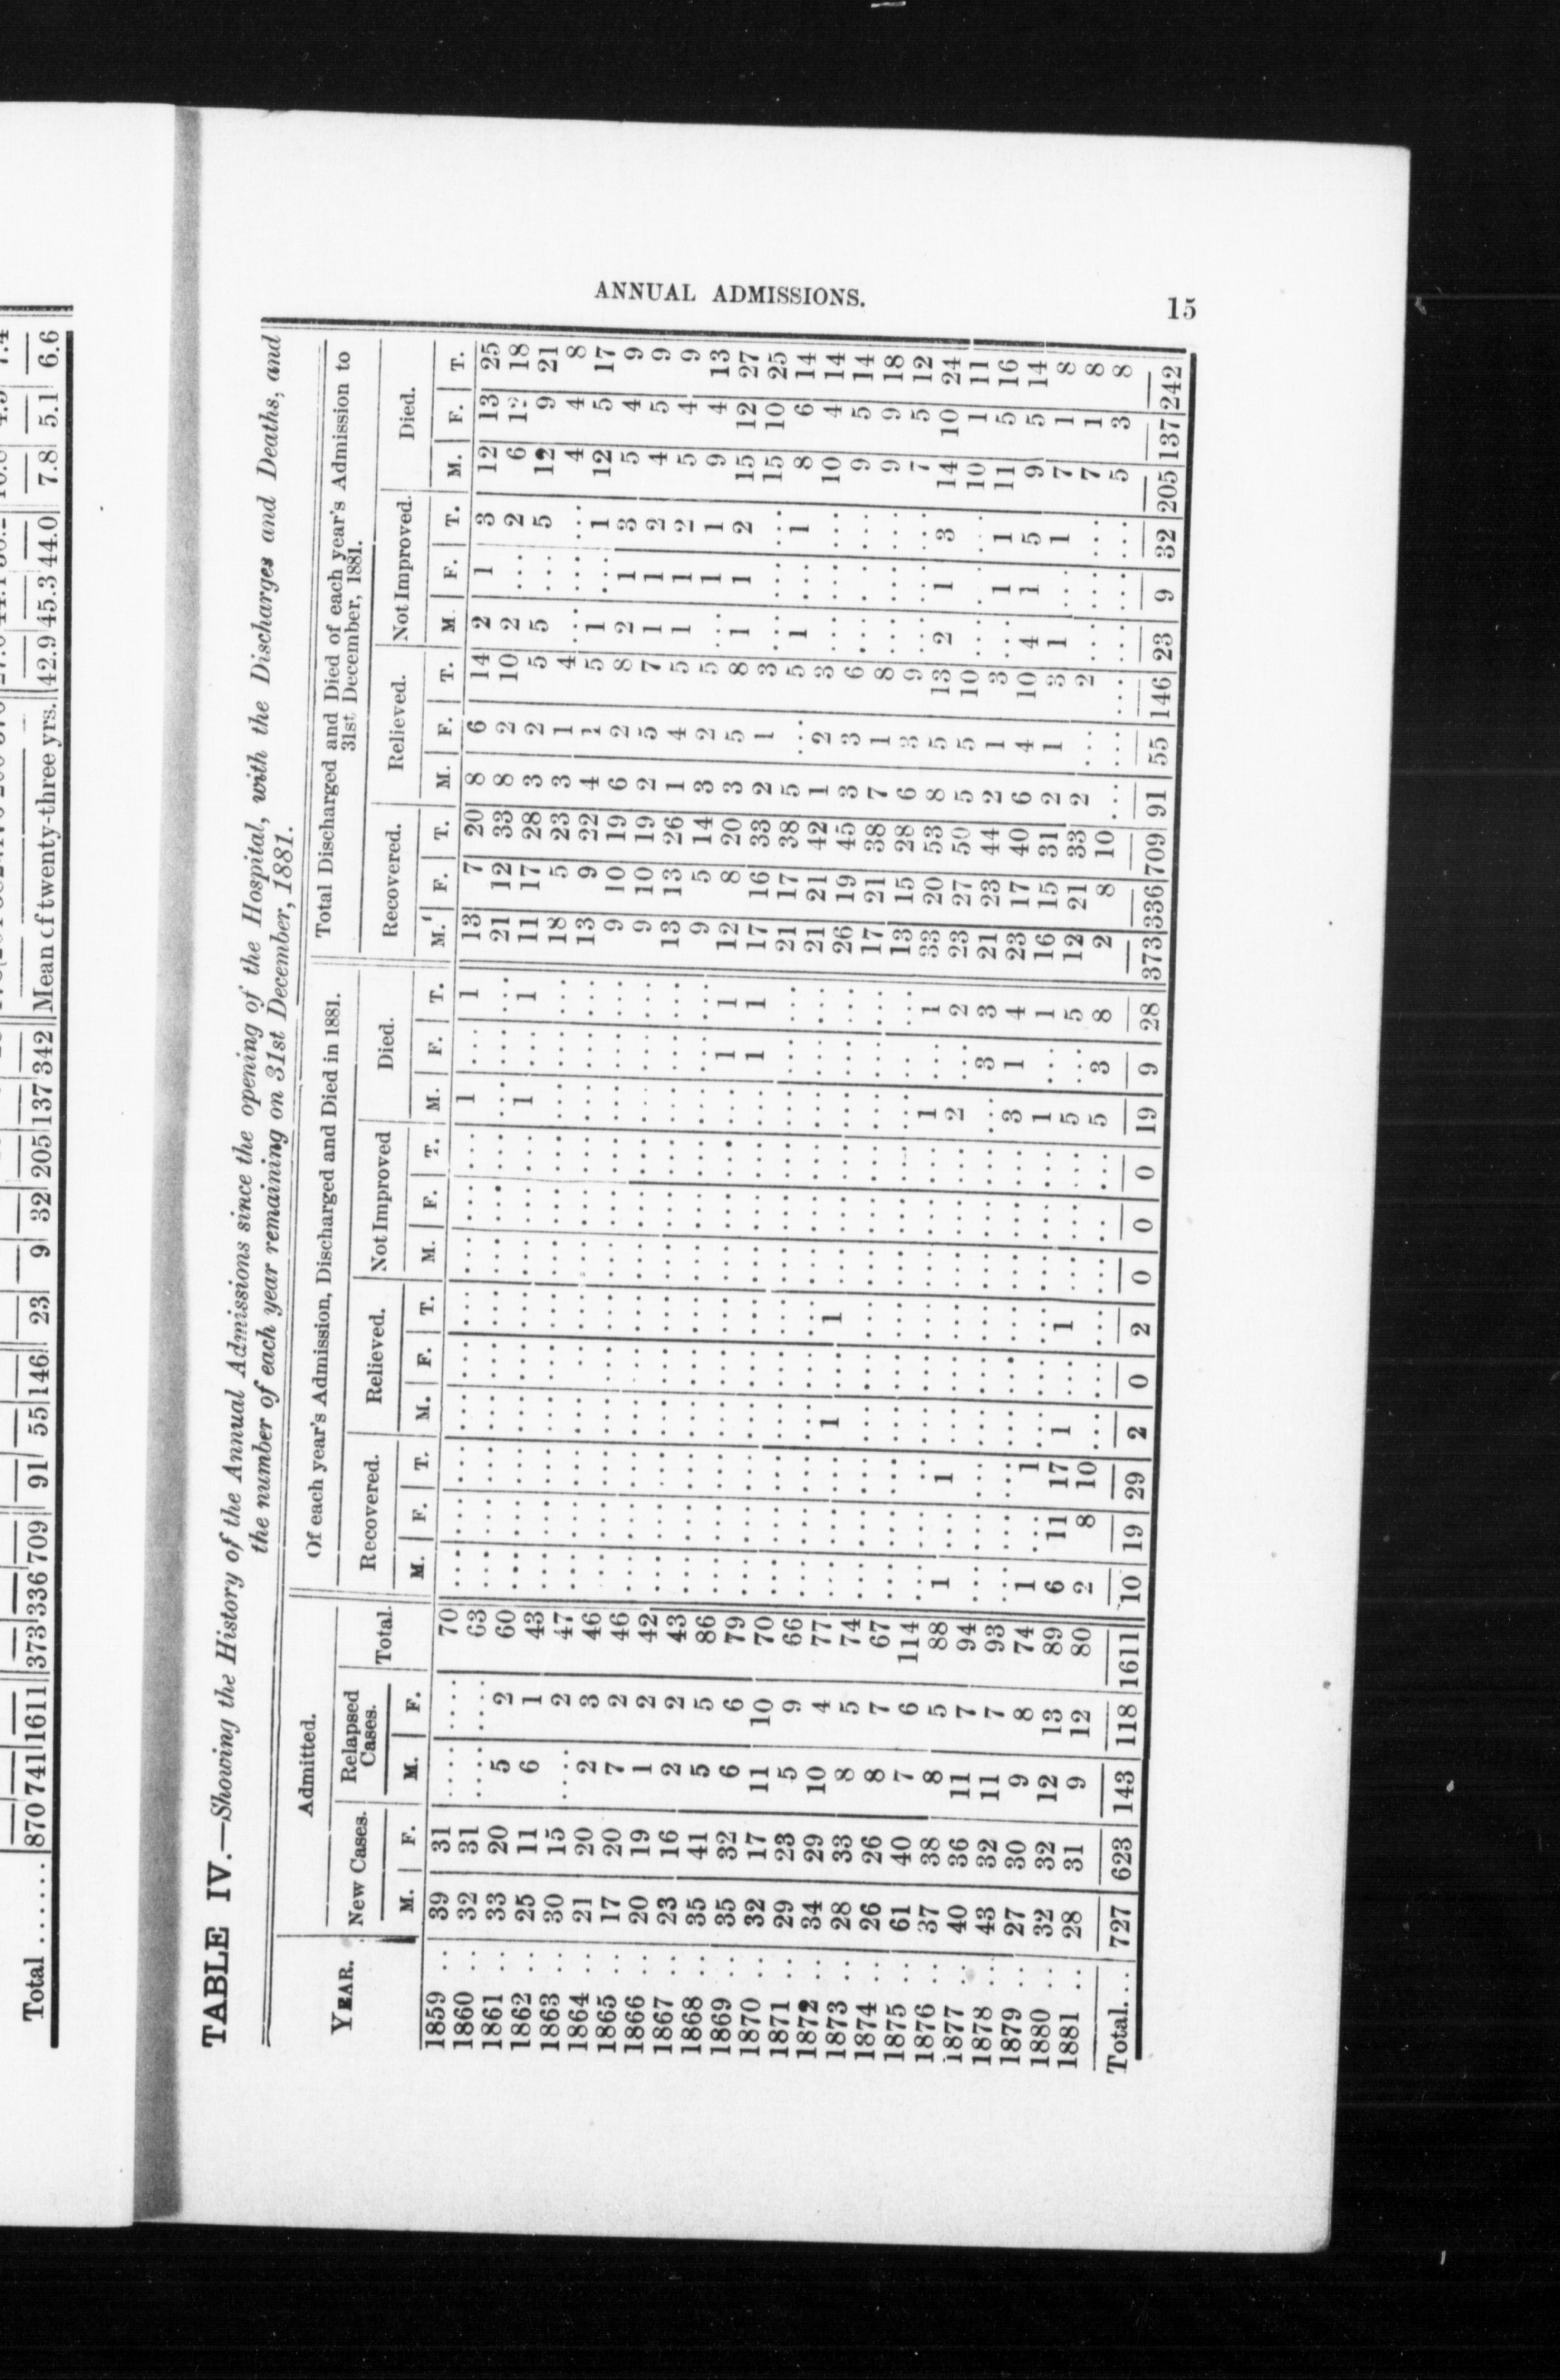 ANNUAL ADMISSIONS.
15
TABLE IV.—Showing the History of the Annual Admissions since the opening of the Hospital, with the Discharges and Deaths, and
the number of each year remaining on 31st December, 1881.
YEAR. Admitted. Of each year's Admission, Discharged and Died in 1881. Total Discharged and Died of each year's Admission to 31st December, 1881.
New Cases. Relapsed Cases. Total. Recovered. Relieved. Not Improved Died. Recovered. Relieved. Not Improved. Died.
M. F. M. F. M. F. T. M. F. T. M. F. T. M. F. T. M. F. T. M. F. T. M F. T. M. F. T.
1859 .. 39 31 .... .... 70 ... ... ... ... ... ... ... ... ... 1 ... 1 13 7 20 8 6 14 2 1 3 12 13 25
1860 .. 32 31 .... .... 63 ... ... ... ... ... ... ... ... ... ... ... ... 21 12 33 8 2 10 2 ... 2 6 12 18
1861 .. 33 20 5 2 60 ... ... ... ... ... ... ... ... ... 1 ... 1 11 17 28 3 2 5 5 ... 5 12 9 21
1862 .. 25 11 6 1 43 ... ... ... ... ... ... ... ... ... ... ... ... 18 5 23 3 1 4 ... ... ... 4 4 8
1863 .. 30 15 .... 2 47 ... ... ... ... ... ... ... ... ... ... ... ... 13 9 22 4 1 5 1 ... 1 12 5 17
1864 .. 21 20 2 3 46 ... ... ... ... ... ... ... ... ... ... ... ... 9 10 19 6 2 8 2 1 3 5 4 9
1865 .. 17 20 7 2 46 ... ... ... ... ... ... ... ... ... ... ... ... 9 10 19 2 5 7 1 1 2 4 5 9
1866 .. 20 19 1 2 42 ... ... ... ... ... ... ... ... ... ... ... ... 13 13 26 1 4 5 1 1 2 5 4 9
1867 .. 23 16 2 2 43 ... ... ... ... ... ... ... ... ... ... ... ... 9 5 14 3 2 5 ... 1 1 9 4 13
1868 .. 35 41 5 5 86 ... ... ... ... ... ... ... ... ... ... 1 1 12 8 20 3 5 8 1 1 2 15 12 27
1869 .. 35 32 6 6 79 ... ... ... ... ... ... ... ... ... ... 1 1 17 16 33 2 1 3 ... ... ... 15 10 25
1870 .. 32 17 11 10 70 ... ... ... ... ... ... ... ... ... ... ... ... 21 17 38 5 ... 5 1 ... 1 8 6 14
1871 .. 29 23 5 9 66 ... ... ... ... ... ... ... ... ... ... ... ... 21 21 42 1 2 3 ... ... ... 10 4 14
1872 .. 34 29 10 4 77 ... ... ... 1 ... 1 ... ... ... ... ... ... 26 19 45 3 3 6 ... ... ... 9 5 14
1873 .. 28 33 8 5 74 ... ... ... ... ... ... ... ... ... ... ... ... 17 21 38 7 1 8 ... ... ... 9 9 18
1874 .. 26 26 8 7 67 ... ... ... ... ... ... ... ... ... ... ... ... 13 15 28 6 3 9 ... ... ... 7 5 12
1875 .. 61 40 7 6 114 ... ... ... ... ... ... ... ... ... 1 ... 1 33 20 53 8 5 13 2 1 3 14 10 24
1876 .. 37 38 8 5 88 1 ... 1 ... ... ... ... ... ... 2 ... 2 23 27 50 5 5 10 ... ... ... 10 1 11
1877 .. 40 36 11 7 94 ... ... ... ... ... ... ... ... ... ... 3 3 21 23 44 2 1 3 ... 1 1 11 5 16
1878 .. 43 32 11 7 93 ... ... ... ... ... ... ... ... ... 3 1 4 23 17 40 6 4 10 4 1 5 9 5 14
1879 .. 27 30 9 8 74 1 ... 1 ... ... ... ... ... ... 1 ... 1 16 15 31 2 1 3 1 ... 1 7 1 8
1880 .. 32 32 12 13 89 6 11 17 1 ... 1 ... ... ... 5 ... 5 12 21 33 2 ... 2 ... ... ... 7 1 8
1881 .. 28 31 9 12 80 2 8 10 ... ... ... ... ... ... 5 3 8 2 8 10 ... ... ... ... ... ... 5 3 8
Total... 727 623 143 118 1611 10 19 29 2 0 2 0 0 0 19 9 28 373 336 709 91 55 146 23 9 32 205 137 242
Total ...... 870 741 1611 373 336 709 91 55 146 23 9 32 205 137 342 Mean of twenty-three yrs. 42.9 45.3 44.0 7.8 5.1 6.6